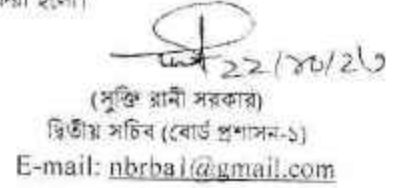 হলো।
22/10/23
(সুক্তি রানী সরকার)
দ্বিতীয় সচিব (বোর্ড প্রশাসন-১)
E-mail: nbrba1@gmail.com